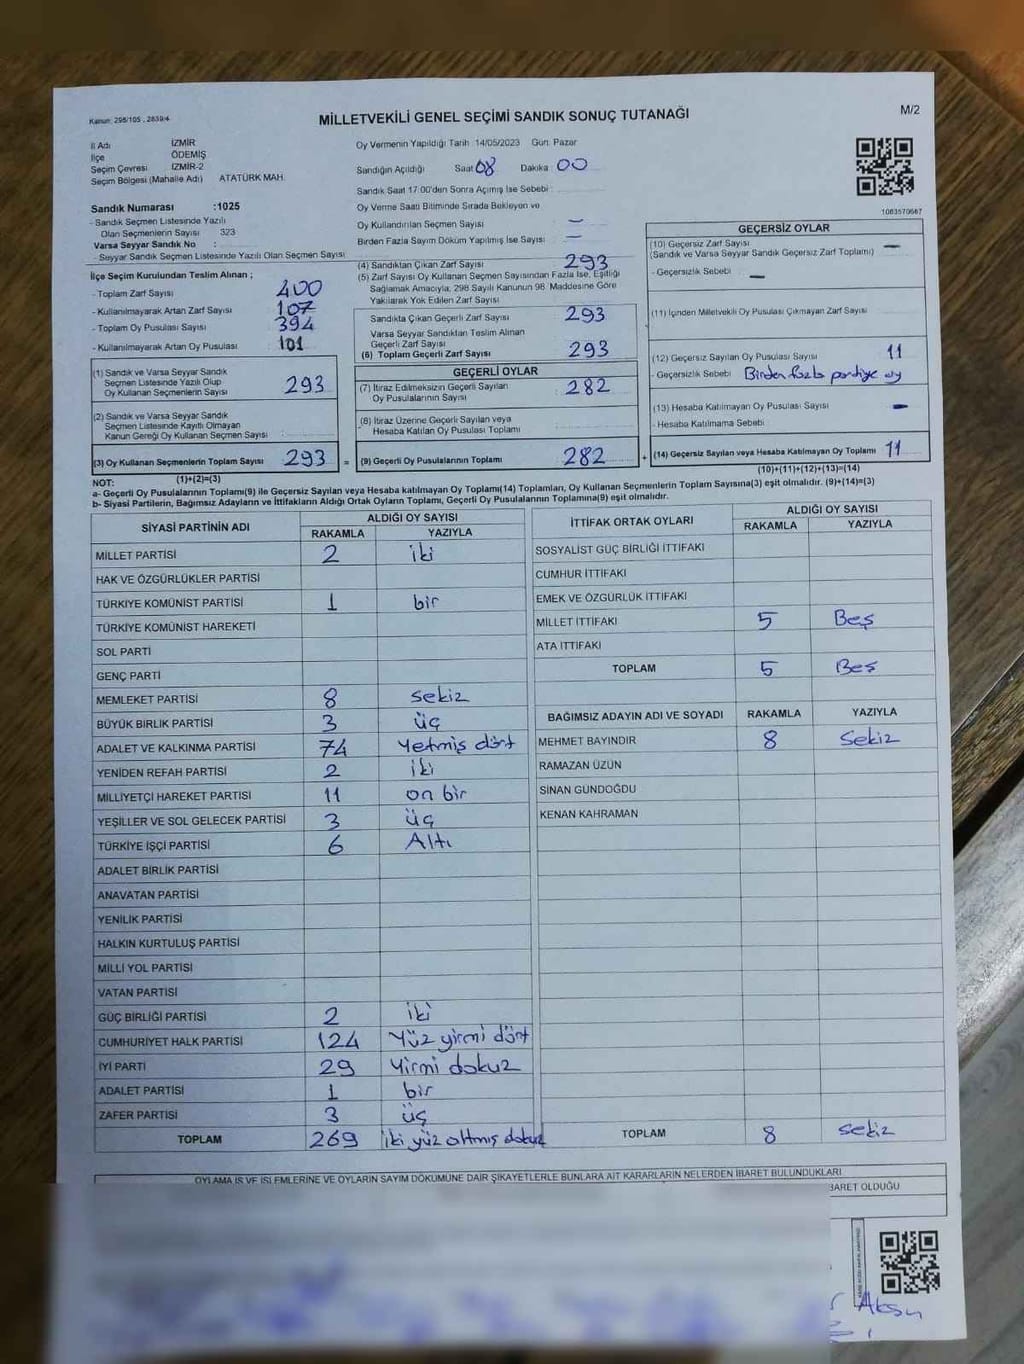 Kanun: 298/105 , 2839/4
MİLLETVEKİLİ GENEL SEÇİMİ SANDIK SONUÇ TUTANAĞI
M/2
İl Adı İZMİR
İlçe ÖDEMİŞ
Seçim Çevresi İZMİR-2
Seçim Bölgesi (Mahalle Adı) ATATÜRK MAH.
Sandık Numarası :1025
- Sandık Seçmen Listesinde Yazılı
Olan Seçmenlerin Sayısı 323
Varsa Seyyar Sandık No :
- Seyyar Sandık Seçmen Listesinde Yazılı Olan Seçmen Sayısı
İlçe Seçim Kurulundan Teslim Alınan ;
- Toplam Zarf Sayısı 400
- Kullanılmayarak Artan Zarf Sayısı 107
- Toplam Oy Pusulası Sayısı 394
- Kullanılmayarak Artan Oy Pusulası 101
(1) Sandık ve Varsa Seyyar Sandık
Seçmen Listesinde Yazılı Olup
Oy Kullanan Seçmenlerin Sayısı 293
(2) Sandık ve Varsa Seyyar Sandık
Seçmen Listesinde Kayıtlı Olmayan
Kanun Gereği Oy Kullanan Seçmen Sayısı
(3) Oy Kullanan Seçmenlerin Toplam Sayısı 293 =
(1)+(2)=(3)
Oy Vermenin Yapıldığı Tarih 14/05/2023 Gün: Pazar
Sandığın Açıldığı Saat 08 Dakika 00
Sandık Saat 17:00'den Sonra Açımış İse Sebebi :
Oy Verme Saati Bitiminde Sırada Bekleyen ve
Oy Kullandırılan Seçmen Sayısı —
Birden Fazla Sayım Döküm Yapılmış İse Sayısı —
(4) Sandıktan Çıkan Zarf Sayısı 293
(5) Zarf Sayısı Oy Kullanan Seçmen Sayısından Fazla İse, Eşitliği
Sağlamak Amacıyla, 298 Sayılı Kanunun 98. Maddesine Göre
Yakılarak Yok Edilen Zarf Sayısı
Sandıkta Çıkan Geçerli Zarf Sayısı 293
Varsa Seyyar Sandıktan Teslim Alınan
Geçerli Zarf Sayısı
(6) Toplam Geçerli Zarf Sayısı 293
GEÇERLİ OYLAR
(7) İtiraz Edilmeksizin Geçerli Sayılan
Oy Pusulalarının Sayısı 282
(8) İtiraz Üzerine Geçerli Sayılan veya
Hesaba Katılan Oy Pusulası Toplamı
(9) Geçerli Oy Pusulalarının Toplamı 282 +
1063570687
GEÇERSİZ OYLAR
(10) Geçersiz Zarf Sayısı —
(Sandık ve Varsa Seyyar Sandık Geçersiz Zarf Toplamı)
- Geçersizlik Sebebi —
(11) İçinden Milletvekili Oy Pusulası Çıkmayan Zarf Sayısı
(12) Geçersiz Sayılan Oy Pusulası Sayısı 11
- Geçersizlik Sebebi Birden fazla partiye oy
(13) Hesaba Katılmayan Oy Pusulası Sayısı —
- Hesaba Katılmama Sebebi
(14) Geçersiz Sayılan veya Hesaba Katılmayan Oy Toplamı 11
(10)+(11)+(12)+(13)=(14)
NOT:
a- Geçerli Oy Pusulalarının Toplamı(9) ile Geçersiz Sayılan veya Hesaba katılmayan Oy Toplamı(14) Toplamları, Oy Kullanan Seçmenlerin Toplam Sayısına(3) eşit olmalıdır. (9)+(14)=(3)
b- Siyasi Partilerin, Bağımsız Adayların ve İttifakların Aldığı Ortak Oyların Toplamı, Geçerli Oy Pusulalarının Toplamına(9) eşit olmalıdır.
SİYASİ PARTİNİN ADI ALDIĞI OY SAYISI
RAKAMLA YAZIYLA
MİLLET PARTİSİ 2 iki
HAK VE ÖZGÜRLÜKLER PARTİSİ
TÜRKİYE KOMÜNİST PARTİSİ 1 bir
TÜRKİYE KOMÜNİST HAREKETİ
SOL PARTİ
GENÇ PARTİ
MEMLEKET PARTİSİ 8 sekiz
BÜYÜK BİRLİK PARTİSİ 3 üç
ADALET VE KALKINMA PARTİSİ 74 Yetmiş dört
YENİDEN REFAH PARTİSİ 2 iki
MİLLİYETÇİ HAREKET PARTİSİ 11 on bir
YEŞİLLER VE SOL GELECEK PARTİSİ 3 üç
TÜRKİYE İŞÇİ PARTİSİ 6 Altı
ADALET BİRLİK PARTİSİ
ANAVATAN PARTİSİ
YENİLİK PARTİSİ
HALKIN KURTULUŞ PARTİSİ
MİLLİ YOL PARTİSİ
VATAN PARTİSİ
GÜÇ BİRLİĞİ PARTİSİ 2 iki
CUMHURİYET HALK PARTİSİ 124 Yüz yirmi dört
İYİ PARTİ 29 Yirmi dokuz
ADALET PARTİSİ 1 bir
ZAFER PARTİSİ 3 üç
TOPLAM 269 iki yüz altmış dokuz
İTTİFAK ORTAK OYLARI ALDIĞI OY SAYISI
RAKAMLA YAZIYLA
SOSYALİST GÜÇ BİRLİĞİ İTTİFAKI
CUMHUR İTTİFAKI
EMEK VE ÖZGÜRLÜK İTTİFAKI
MİLLET İTTİFAKI 5 Beş
ATA İTTİFAKI
TOPLAM 5 Beş
BAĞIMSIZ ADAYIN ADI VE SOYADI RAKAMLA YAZIYLA
MEHMET BAYINDIR 8 Sekiz
RAMAZAN ÜZÜN
SİNAN GÜNDOĞDU
KENAN KAHRAMAN
TOPLAM 8 sekiz
OYLAMA İŞ VE İŞLEMLERİNE VE OYLARIN SAYIM DÖKÜMÜNE DAİR ŞİKAYETLERLE BUNLARA AİT KARARLARIN NELERDEN İBARET BULUNDUKLARI
BARET OLDUĞU
Aksu